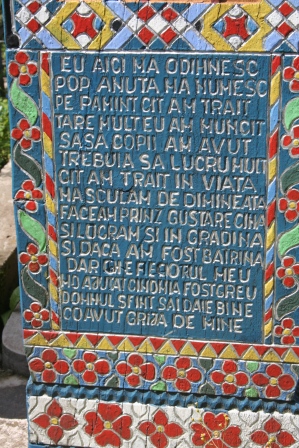 EU AICI MA ODIHNESC
POP ANUTA MA NUMESC
PE PAMINT CIT AM TRAIT
TARE MULT EU AM MUNCIT
SASA COPII AM AVUT
TREBUIA SA LUCRU MULT
CIT AM TRAIT IN VIATA
MA SCULAM DE DIMINEATA
FACEAM PRINZ GUSTARE CINA
SI LUCRAM SI IN GRADINA
SI DACA AM FOST BATRINA
DAR GHE FECIORUL MEU
MO AJUTAT CIND MIA FOST GREU
DOMNUL SFINT SAI DAIE BINE
CO AVUT GRIJA DE MINE